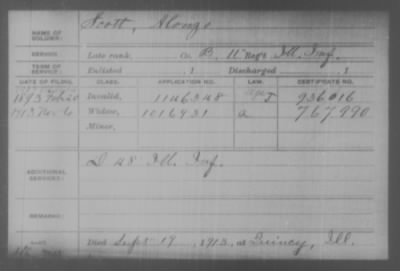 NAME OF SOLDIER: Scott, Alonzo
SERVICE: Late rank, Co. B, 11" Reg't Ill. Inf.
TERM OF SERVICE: Enlisted , 1 Discharged , 1
DATE OF FILING. CLASS. APPLICATION NO. LAW. CERTIFICATE NO.
Invalid, 1146348 J 936016
1913 Nov 6 Widow, 1016931 a 767,990
Minor,
ADDITIONAL SERVICES: D 48 Ill. Inf.
REMARKS:
Died Sept 19, 1913, at Quincy, Ill.